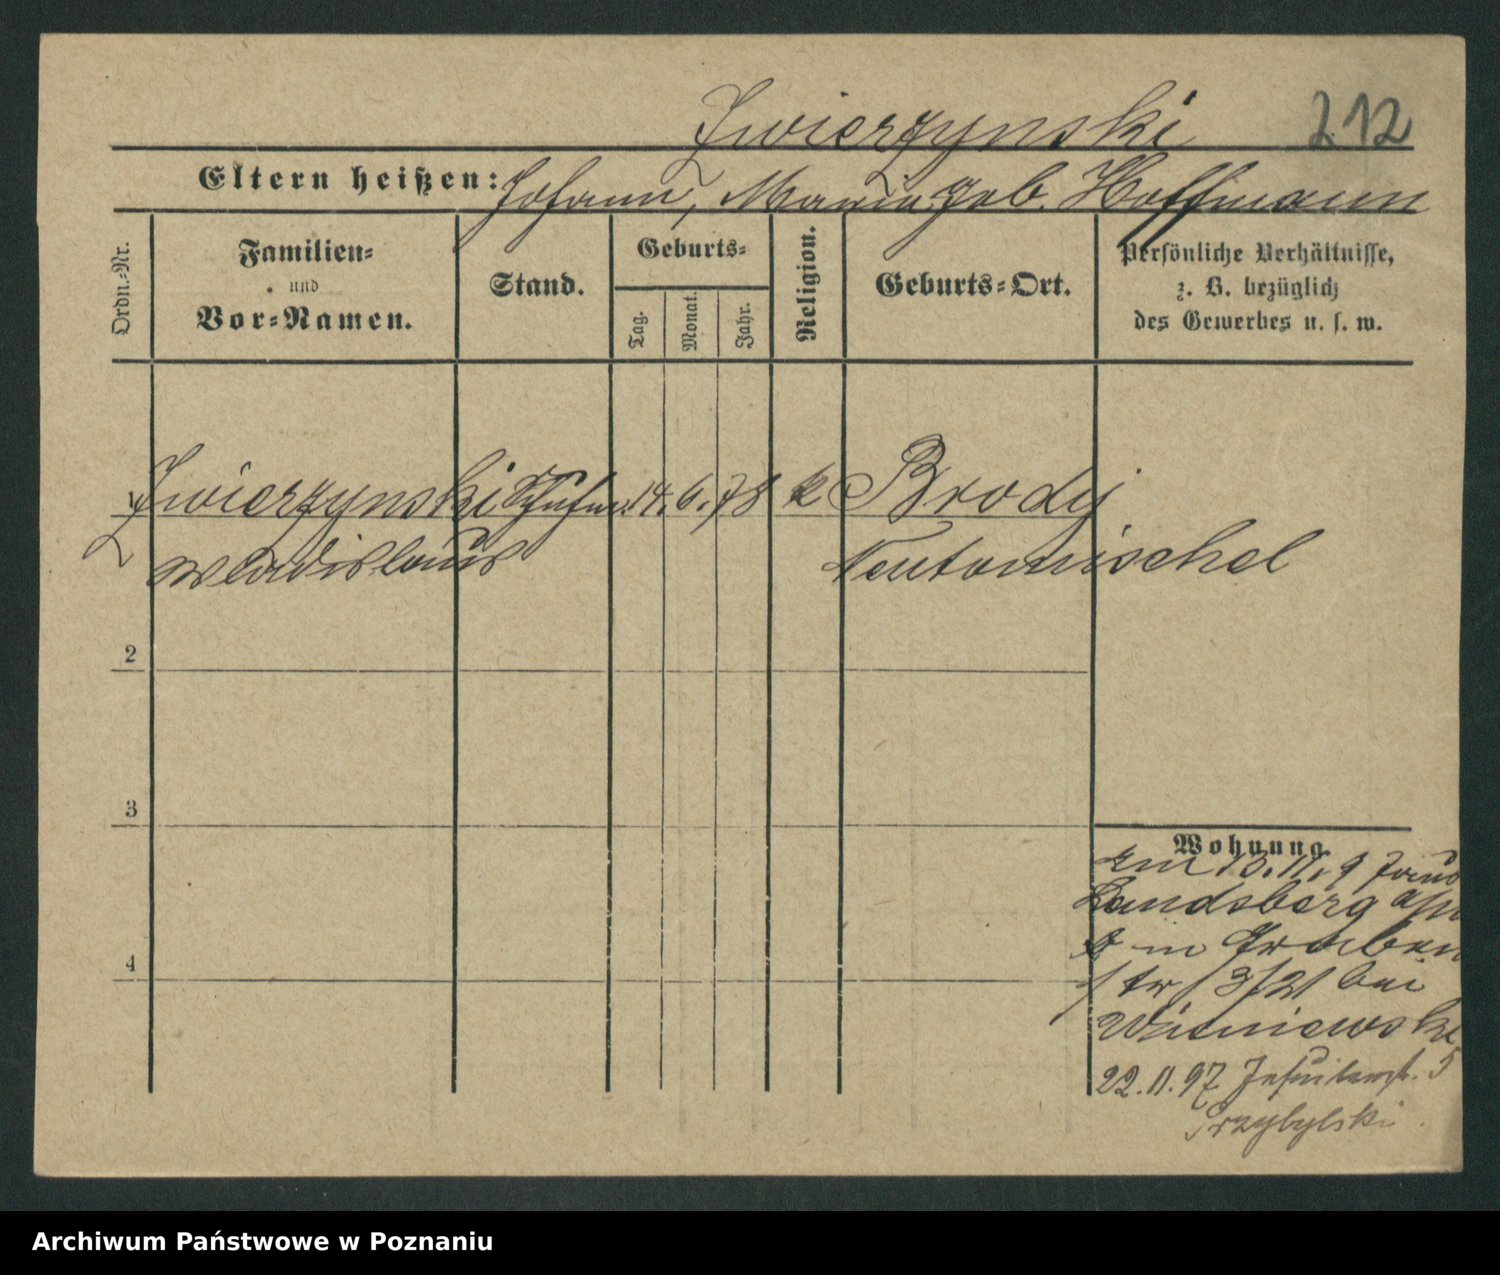 Zwierzynski 212
Eltern heißen: Johann, Maria geb. Hoffmann
Ordn.-Nr.
Familien-
und
Vor-Namen.
Stand.
Geburts-
Tag.
Monat.
Jahr.
Religion.
Geburts-Ort.
Persönliche Verhältnisse,
z. B. bezüglich
des Gewerbes u. s. w.
1 Zwierzynski 14. 6. 78 k Brody
Wladislaus Neutomischel
2
3
4
Wohnung.
am 13. 11. 9
Landsberg a/W
in Graben
str 13/21 bei
Wisniewski
22. 11. 97 Jesuitenstr. 5
Przybylski
Archiwum Państwowe w Poznaniu